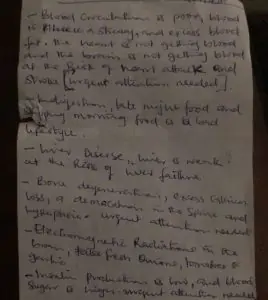 - Blood Circulation is poor, blood
is thick & strong, and excess blood
fat, the heart is not getting blood
and the brain is not getting blood
at the Risk of Heart attack and
Stroke [urgent attention needed].
- Indigestion, late night food and
morning food is bad
lifestyle.
- Liver Disease, liver is weak
at the Risk of liver failure
- Bone degeneration, excess Calcium
loss, a deterioration in the Spine and
urgent attention needed
- Electromagnetic Radiations in the
brain, take fresh Onions, tomatoes &
garlic
- Insulin production is low, and blood
Sugar is high - urgent attention needed